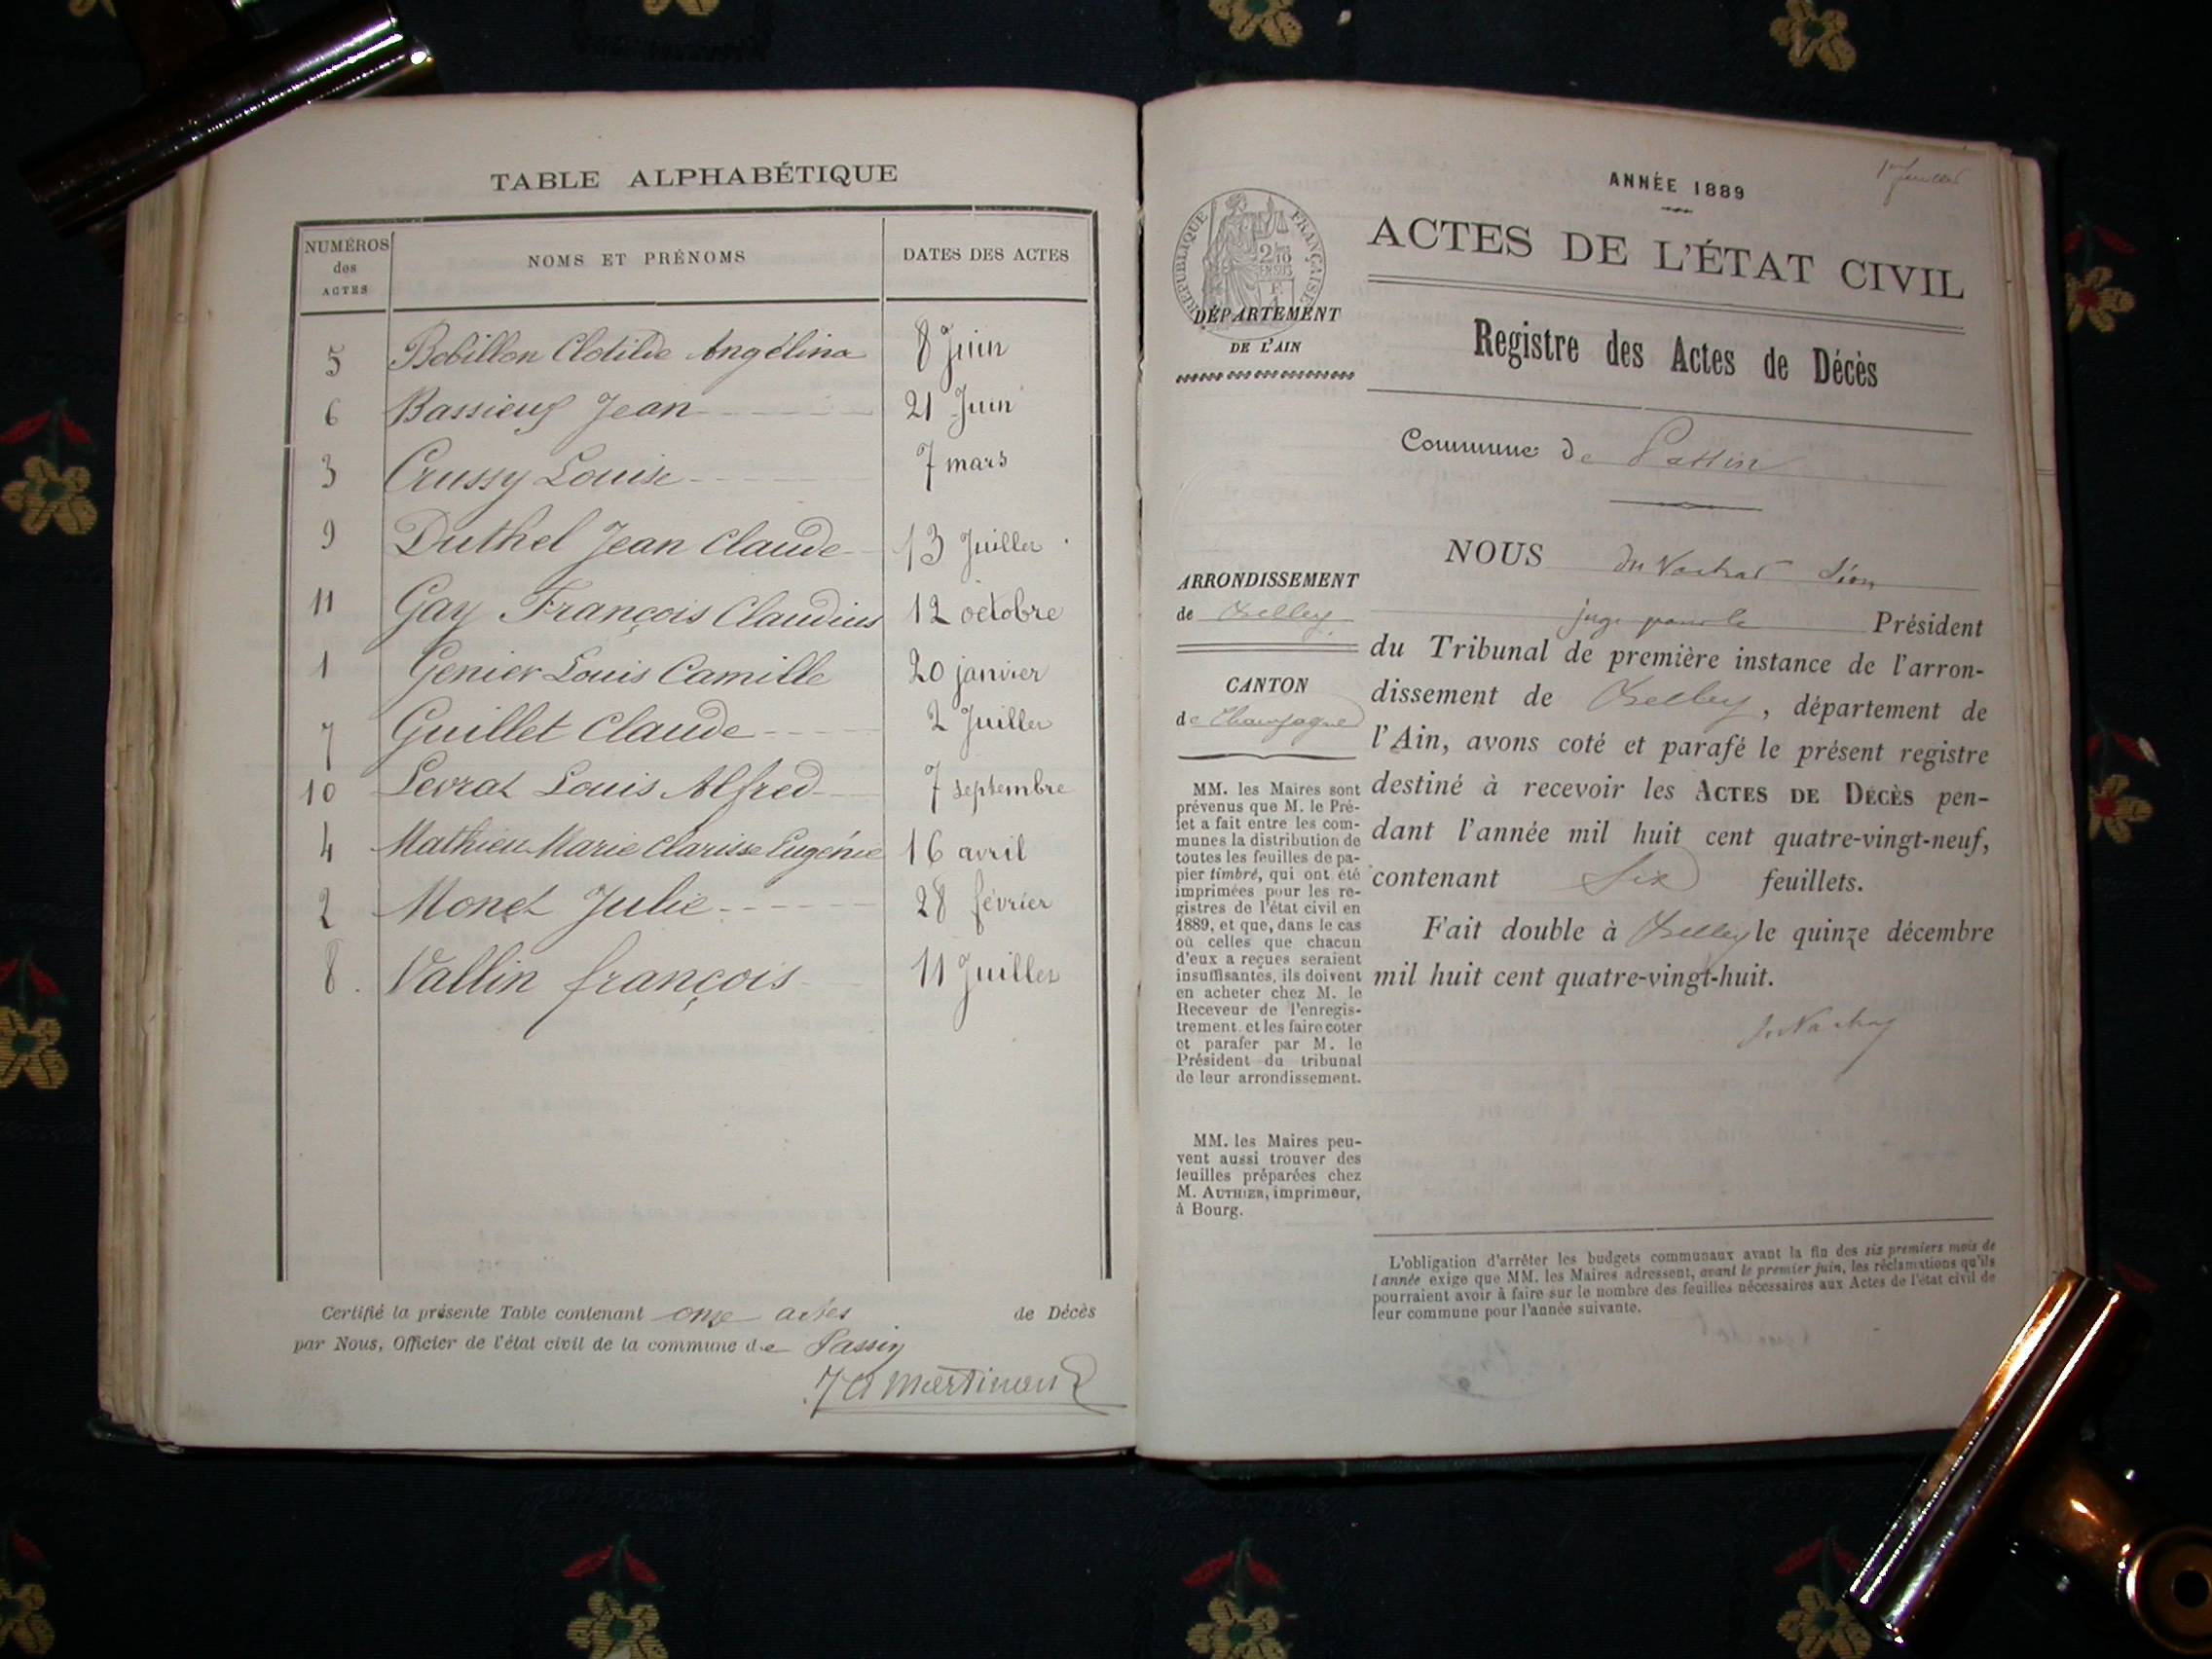 TABLE ALPHABÉTIQUE
NUMÉROS
des
ACTES
NOMS ET PRÉNOMS
DATES DES ACTES
5 Bobillon Clotilde Angélina 8 Juin
6 Bassieux Jean 21 Juin
3 Crussy Louise 7 mars
9 Duthel Jean Claude 13 Juillet
11 Gay François Claudius 12 octobre
1 Genier Louis Camille 20 janvier
7 Guillet Claude 2 Juillet
10 Levrat Louis Alfred 7 septembre
4 Mathieu Marie Clarisse Eugénie 16 avril
2 Monet Julie 28 février
8 Vallin françois 11 Juillet
Certifié la présente Table contenant onze actes de Décès
par Nous, Officier de l'état civil de la commune de Passin
Martinand
1er feuillet
ANNÉE 1889
ACTES DE L'ÉTAT CIVIL
RÉPUBLIQUE FRANÇAISE
2/10
EN SUS
DÉPARTEMENT
DE L'AIN
Registre des Actes de Décès
Commune de Passin
ARRONDISSEMENT
de Belley
CANTON
de Champagne
MM. les Maires sont
prévenus que M. le Pré-
fet a fait entre les com-
munes la distribution de
toutes les feuilles de pa-
pier timbré, qui ont été
imprimées pour les re-
gistres de l'état civil en
1889, et que, dans le cas
où celles que chacun
d'eux a reçues seraient
insuffisantes, ils doivent
en acheter chez M. le
Receveur de l'enregis-
trement, et les faire coter
et parafer par M. le
Président du tribunal
de leur arrondissement.
MM. les Maires peu-
vent aussi trouver des
feuilles préparées chez
M. AUTHIER, imprimeur,
à Bourg.
NOUS du Vachat Léon
juge pour le Président
du Tribunal de première instance de l'arron-
dissement de Belley, département de
l'Ain, avons coté et parafé le présent registre
destiné à recevoir les ACTES DE DÉCÈS pen-
dant l'année mil huit cent quatre-vingt-neuf,
contenant Six feuillets.
Fait double à Belley le quinze décembre
mil huit cent quatre-vingt-huit.
du Vachat
L'obligation d'arrêter les budgets communaux avant la fin des six premiers mois de
l'année exige que MM. les Maires adressent, avant le premier juin, les réclamations qu'ils
pourraient avoir à faire sur le nombre des feuilles nécessaires aux Actes de l'état civil de
leur commune pour l'année suivante.